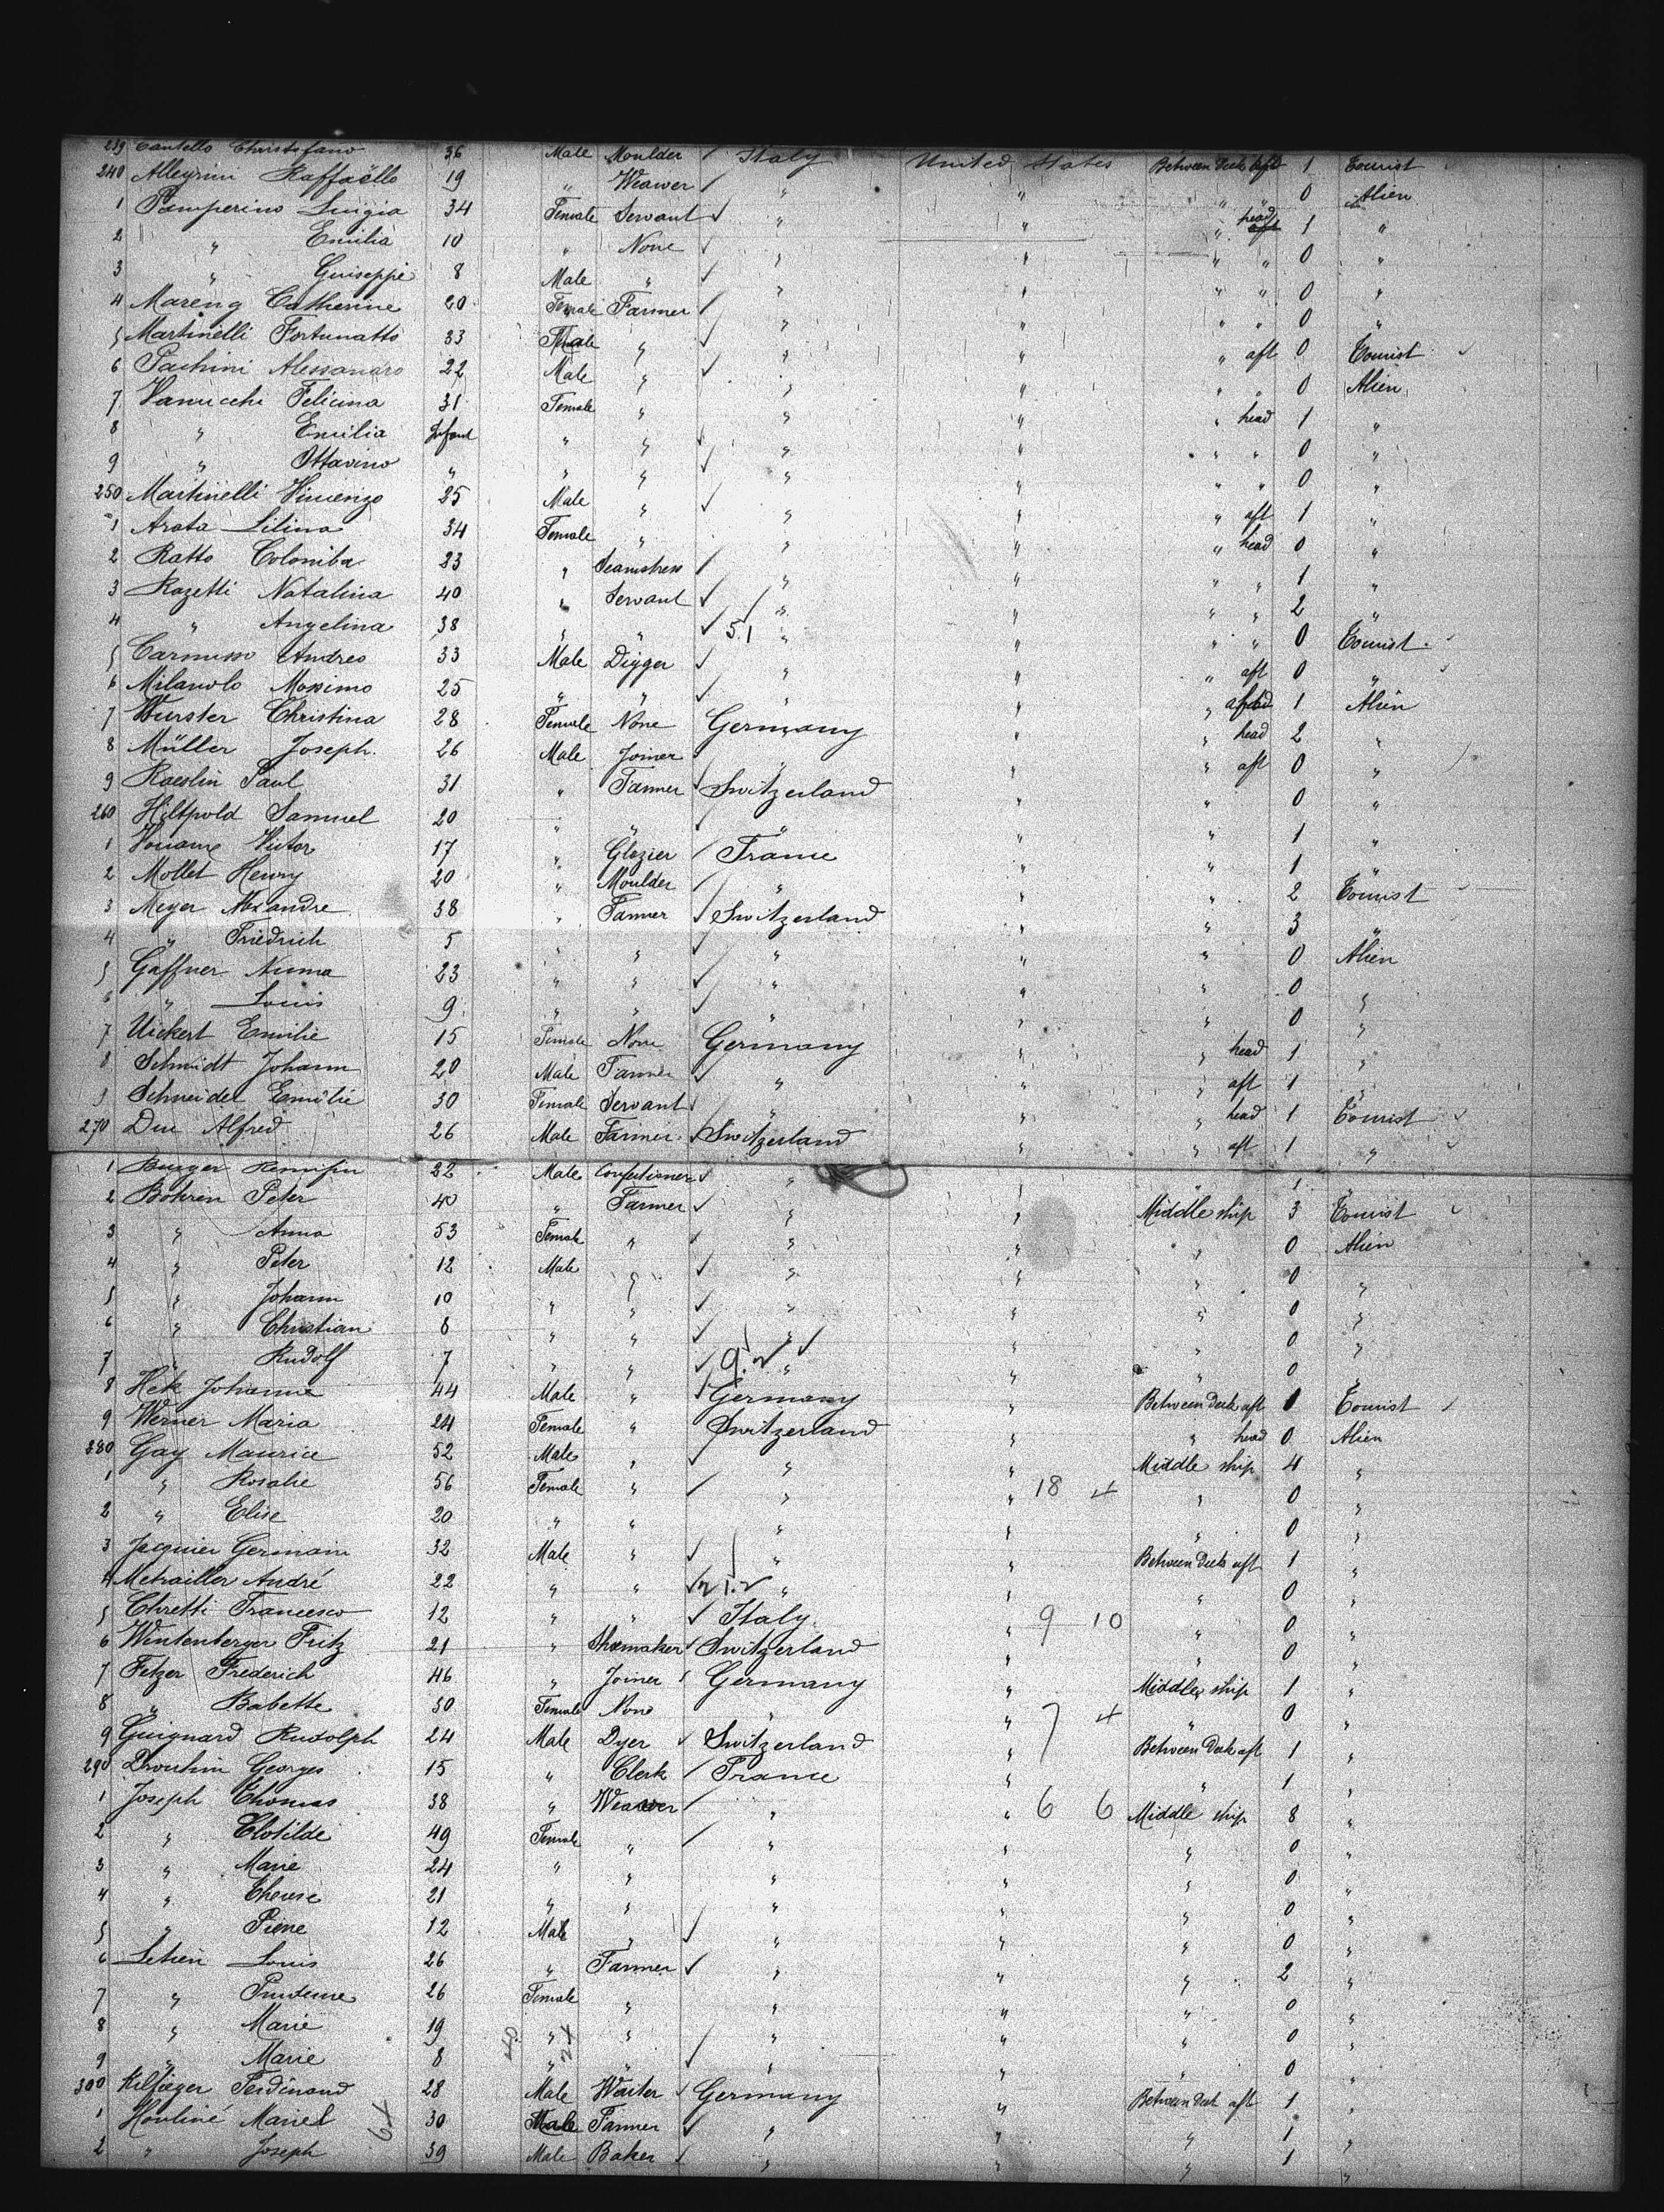 239 Cantello Christofano 36 Male Moulder / Italy United States Between Deck aft 1 Tourist
240 Allegrini Raffaëllo 19 " Weawer / " " " " 0 Alien
1 Pamperino Luigia 34 Female Servant ✓ " " " head 1 "
2 " Emilia 10 " None ✓ " " " " 0 "
3 " Guiseppe 8 Male " ✓ " " " " 0 "
4 Mareng Catherine 20 Female Farmer / " " " " 0 "
5 Martinelli Fortunatto 33 Male " ✓ " " " aft 0 Tourist ✓
6 Pachini Alessandro 22 Male " ✓ " " " " 0 Alien
7 Vanucchi Felicina 31 Female " " " " head 1 "
8 " Emilia Infant " " ✓ " " " " 0 "
9 " Ottavino " " " ✓ " " " " 0 "
250 Martinelli Vincenzo 25 Male " ✓ " " " aft 1 "
1 Arata Lilina 34 Female " " " " head 0 "
2 Ratto Colomba 23 " Seamstress / " " " " 1 "
3 Razetti Natalina 40 " Servant ✓ " " " " 2 "
4 " Angelina 38 " " ✓ 51 " " " " 0 Tourist
5 Carmisso Andreo 33 Male Digger ✓ " " " aft 0 "
6 Milanolo Mossimo 25 " " ✓ " " " 1 Alien
7 Wurster Christina 28 Female None Germany " " head 2 "
8 Müller Joseph 26 Male Joiner " " " aft 0 "
9 Raeslin Paul 31 " Farmer ✓ Switzerland " " 0 "
260 Hiltpold Samuel 20 " " ✓ " " " 1 "
1 Victor 17 " Glazier / France " " 1 "
2 Mollet Henry 20 " Moulder / " " " 2 Tourist
3 Meyer Alexandre 38 " Farmer ✓ Switzerland " " 3 "
4 " Friedrich 5 " " ✓ " " " 0 Alien
5 Gaffner Numa 23 " " ✓ " " " 0 "
6 " Louis 9 " " ✓ " " " 0 "
7 Uickert Emilie 15 Female None Germany " " head 1 "
8 Schmidt Johann 20 Male Farmer ✓ " " " aft 1 "
9 Schneider Emilie 30 Female Servant " " " head 1 Tourist ✓
270 Duc Alfred 26 Male Farmer ✓ Switzerland " " aft 1 "
1 Burger 22 Male Confectioner ✓ " " " 1 "
2 Bohren Peter 40 " Farmer ✓ " " Middle ship 3 Tourist
3 " Anna 53 Female " ✓ " " " 0 Alien
4 " Peter 12 Male " ✓ " " " 0 "
5 " Johann 10 " " ✓ " " " 0 "
6 " Christian 8 " " ✓ " " " 0 "
7 " Rudolf 7 " " ✓ 9 " " " 0 "
8 Hek Johanne 44 Male " Germany " Between Deck aft 1 Tourist
9 Werner Maria 24 Female " Switzerland " " head 0 Alien
280 Gay Maurice 52 Male " ✓ " " Middle ship 4 "
1 " Rosalie 56 Female " ✓ " " 18 4 " 0 "
2 " Elise 20 " " " " " 0 "
3 Jacquier Germain 32 Male " ✓ " " Between Deck aft 1 "
4 Metrailler André 22 " " ✓ " " " 0 "
5 Chretti Francesco 12 " " ✓ Italy " 9 10 " 0 "
6 Wintenberger Fritz 21 " Shoemaker ✓ Switzerland " " 0 "
7 Fetzer Frederich 46 " Joiner Germany " Middle ship 1 "
8 " Babette 50 Female None " " 7 4 " 0 "
9 Guignard Rudolph 24 Male Dyer ✓ Switzerland " Between Deck aft 1 "
290 Drouhin Georges 15 " Clerk / France " " 1 "
1 Joseph Thomas 38 " Weawer / " " 6 6 Middle ship 8 "
2 " Clotilde 49 Female " / " " " 0 "
3 " Marie 24 " " " " " 0 "
4 " Therese 21 " " " " " 0 "
5 " Pierre 12 Male " ✓ " " " 0 "
6 Letien Louis 26 " Farmer ✓ " " " 2 "
7 " Prudence 26 Female " " " " 0 "
8 " Marie 19 " " " " " 0 "
9 " Marie 8 " " ✓ " " " 0 "
300 Kilfaeger Ferdinand 28 Male Waiter ✓ Germany " Between Deck aft 1 "
1 Houliné Mariel 30 Male Farmer ✓ " " " 1 "
2 " Joseph 39 Male Baker ✓ " " " 1 "